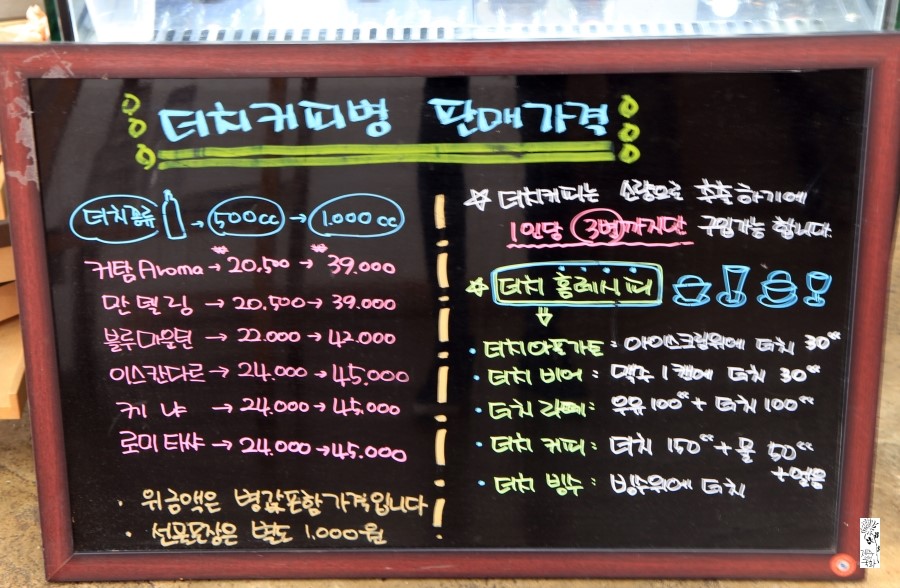 더치커피병 판매가격
더치종류 → 500cc → 1.000cc
커탐Aroma → 20,500 → 39.000
만델링 → 20,500 → 39.000
블루마운틴 → 22.000 → 42.000
이스칸다르 → 24.000 → 45.000
케냐 → 24.000 → 45.000
로미타샤 → 24.000 → 45.000
· 위금액은 병값포함가격입니다
· 선물포장은 별도 1.000원
☆ 더치커피는 소량으로 추출하기에
1인당 3병까지만 구입가능 합니다
☆ 더치 홈레시피
· 더치아포가토 : 아이스크림위에 더치 30cc
· 더치 비어 : 맥주 1캔에 더치 30cc
· 더치 라떼 : 우유 100cc + 더치 100cc
· 더치 커피 : 더치 150cc + 물 50cc
+얼음
· 더치 빙수 : 빙수위에 더치